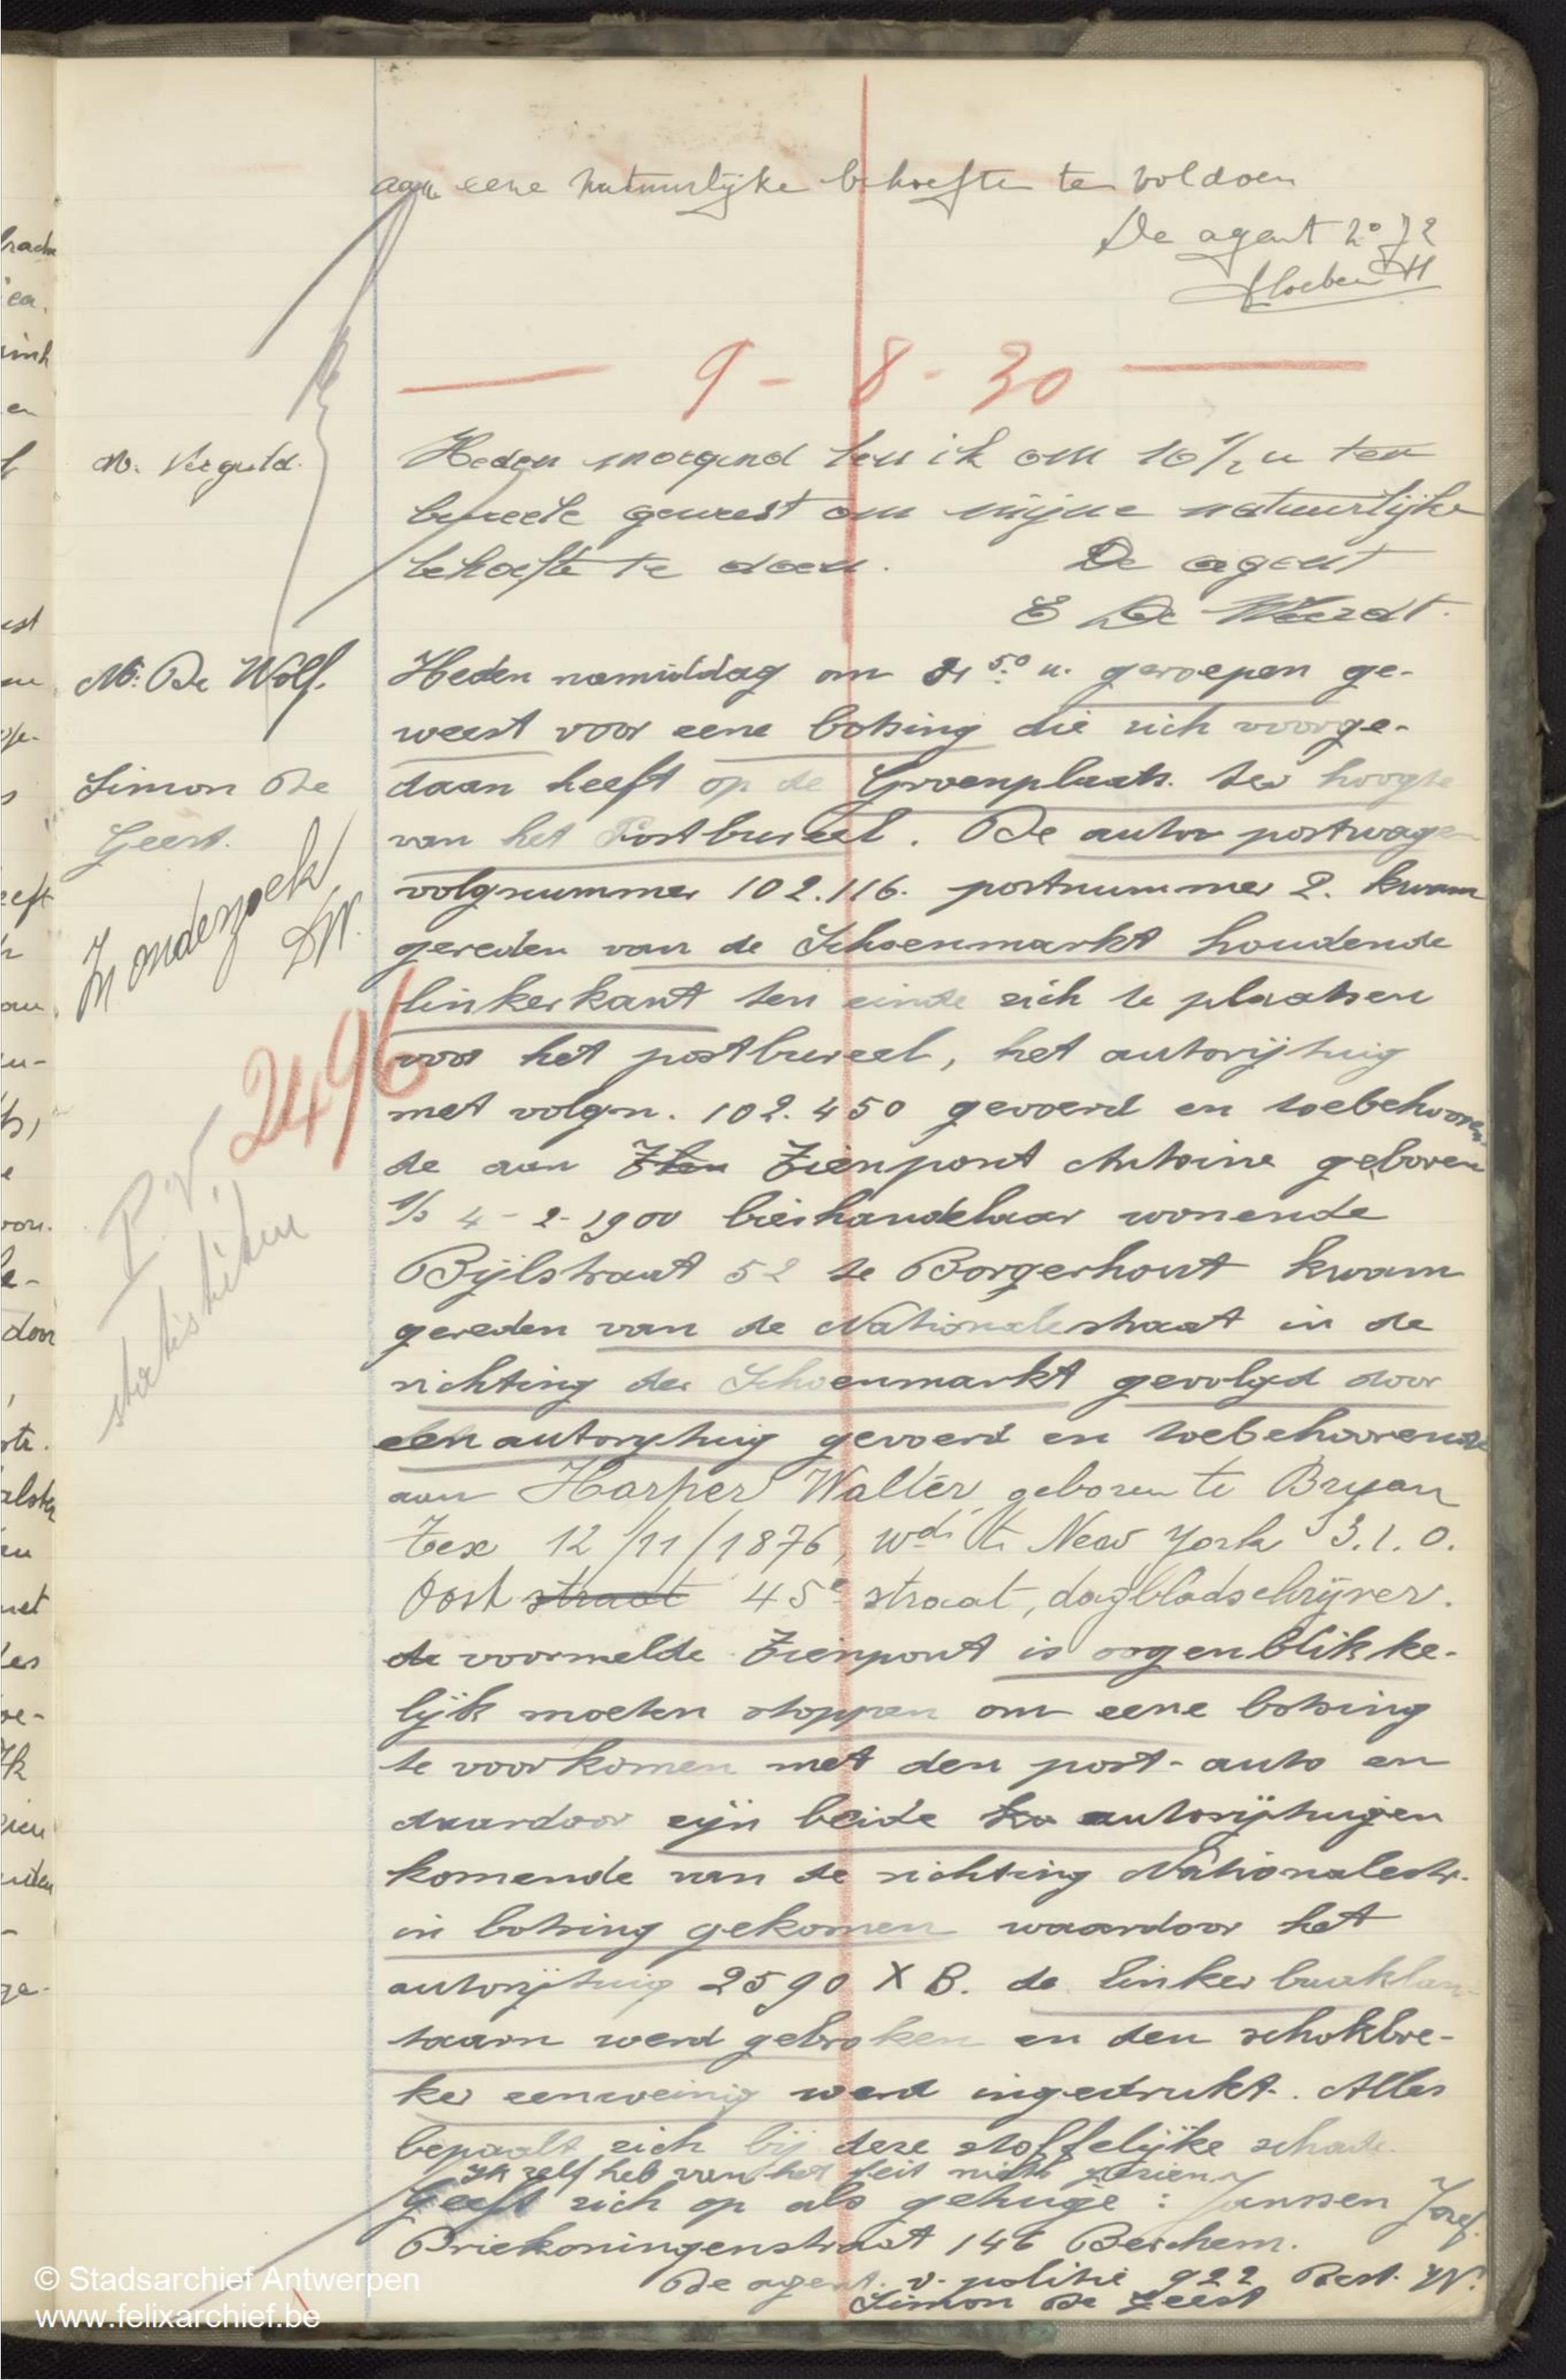 aan eene natuurlijke behoefte te voldoen
De agent 2° 72
9 - 8 - 30
M. Verguld.
Heden morgend ben ik om 10 1/2 u ten
bureele geweest om mijne natuurlijke
behoefte te doen. De agent
E De Weerdt.
M: De Wolf.
Simon De
Geest.
In onderzoek
DW.
2496
P.V
statistieken
Heden namiddag om 50 u. geroepen ge-
weest voor eene botsing die zich voorge-
daan heeft op de Groenplaats. ter hoogte
van het Postbureel. De auto postwagen
volgnummer 102.116. postnummer 2. kwam
gereden van de Schoenmarkt houdende
linkerkant ten einde zich te plaatsen
voor het postbureel, het autorijtuig
met volgn. 102.450 gevoerd en toebehooren-
de aan Zien Zienpont Antoine geboren
4-2-1900 bierhandelaar wonende
Bijlstraat 52 te Borgerhout kwam
gereden van de Nationalestraat in de
richting der Schoenmarkt gevolgd door
een autorijtuig gevoerd en toebehoorende
aan Harper Walter geboren te Bryan
tex 12/11/1876, wde te New York 3.1.0.
Oost straat 45e straat, dagbladschrijver.
de voormelde Zienpont is oogenblikke-
lijk moeten stoppen om eene botsing
te voorkomen met den post-auto en
daardoor zijn beide autorijtuigen
komende van de richting Nationalestr.
in botsing gekomen waardoor het
autorijtuig 2590 X B. de linker baklan-
taarn werd gebroken en den schokbre-
ker eenweinig werd ingedrukt. Alles
bepaalt zich bij deze stoffelijke schade.
ik zelf heb van het feit niets gezien
Geeft zich op als getuige: Janssen Jozef
Driekoningenstraat 146 Berchem.
De agent v. politie 922 Best. W.
Simon De Geest
© Stadsarchief Antwerpen
www.felixarchief.be